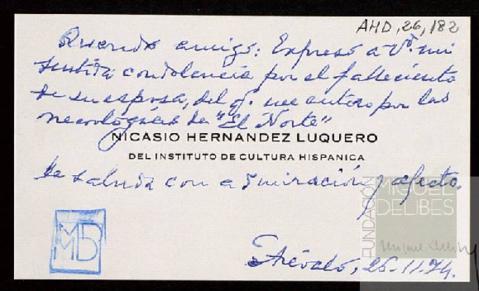 AHD, 26, 182
Querido amigo: Expreso a Vd. mi
sentida condolencia por el fallecimiento
de su esposa, del q. me entero por las
necrológicas de "El Norte"
NICASIO HERNANDEZ LUQUERO
DEL INSTITUTO DE CULTURA HISPANICA
Le saluda con admiración y afecto
Arévalo, 25-11-74.
MD
FUNDACIÓN
MIGUEL
DELIBES